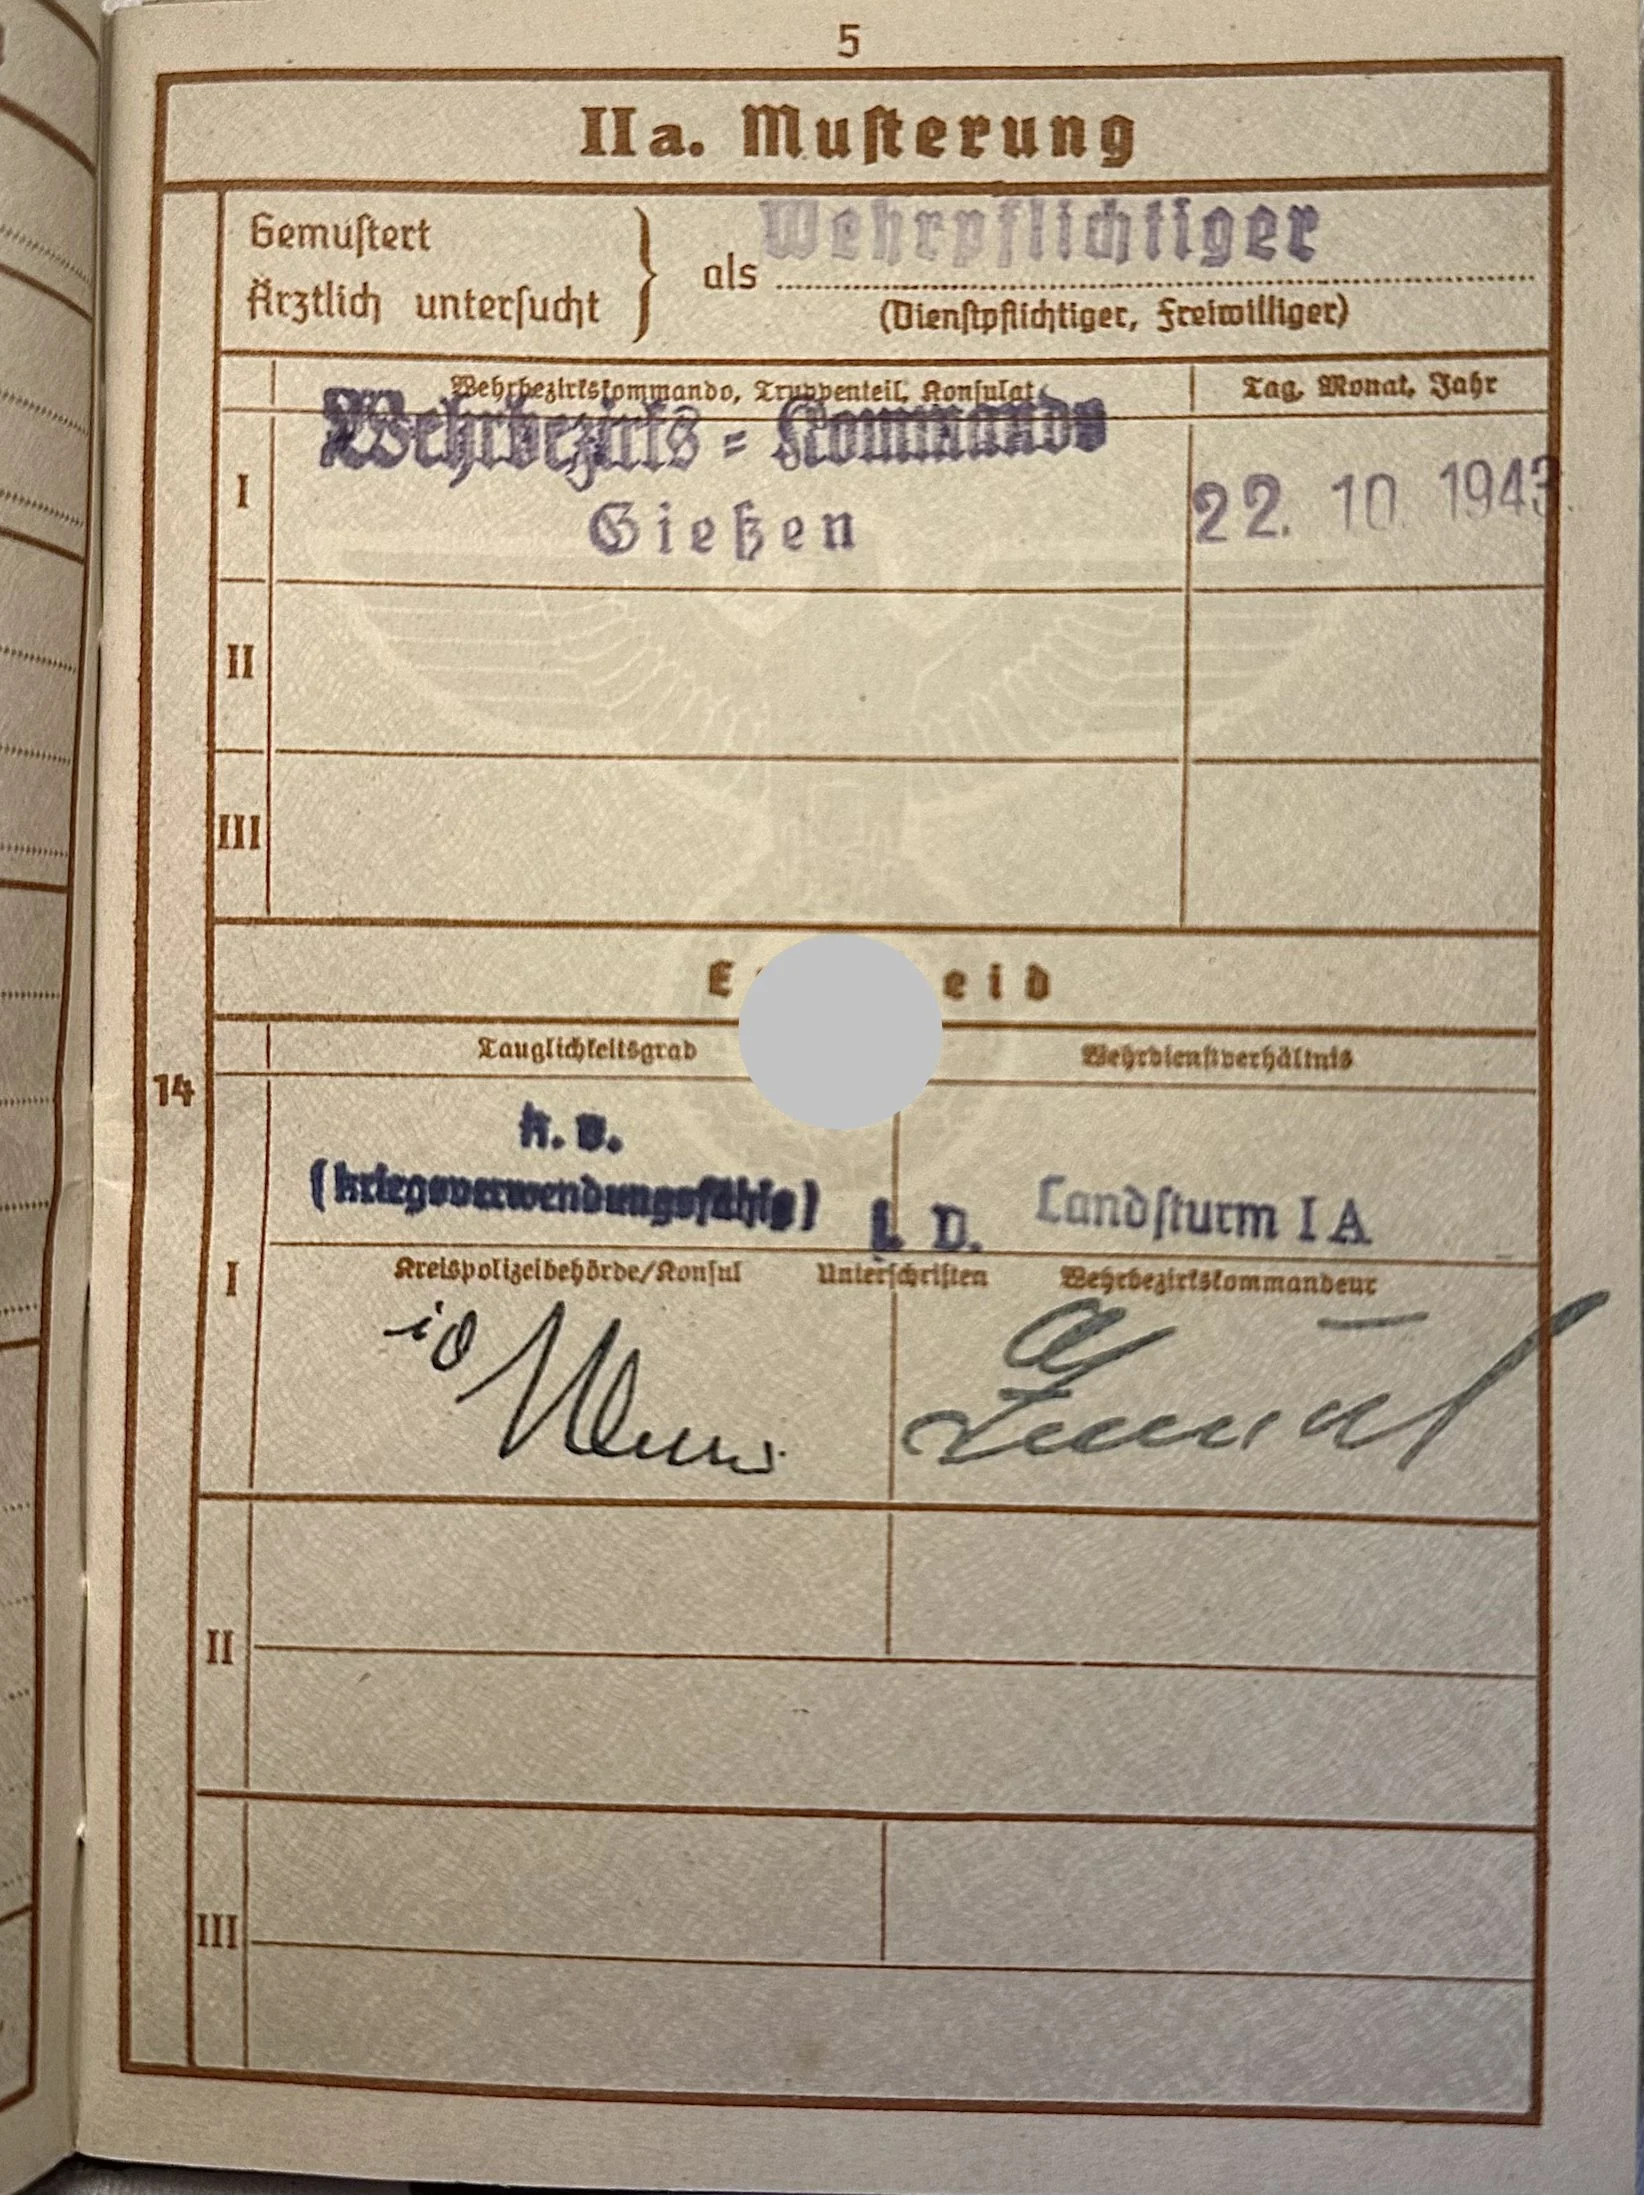 5
IIa. Muſterung
Gemuſtert
Ärztlich unterſucht
als Wehrpflichtiger
(Dienſtpflichtiger, Freiwilliger)
Wehrbezirkskommando, Truppenteil, Konſulat
Tag, Monat, Jahr
I
Wehrbezirks = Kommando
Gießen
22. 10. 1943
II
III
E eid
14
Tauglichkeitsgrad
Wehrdienſtverhältnis
k. v.
(kriegsverwendungsfähig)
L. D.
Landſturm I A
I
Kreispolizeibehörde/Konſul
Unterſchriften
Wehrbezirkskommandeur
II
III